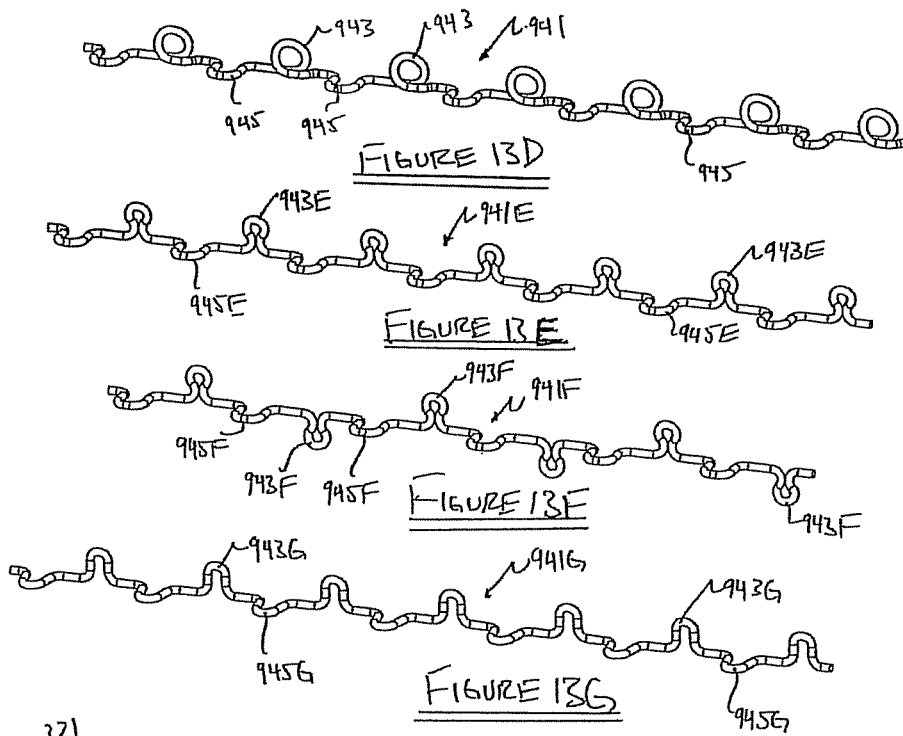 943
943
941
945
945
945
FIGURE 13D
943E
941E
943E
945E
945E
FIGURE 13E
943F
941F
945F
943F
945F
943F
FIGURE 13F
943G
941G
943G
945G
945G
FIGURE 13G
321